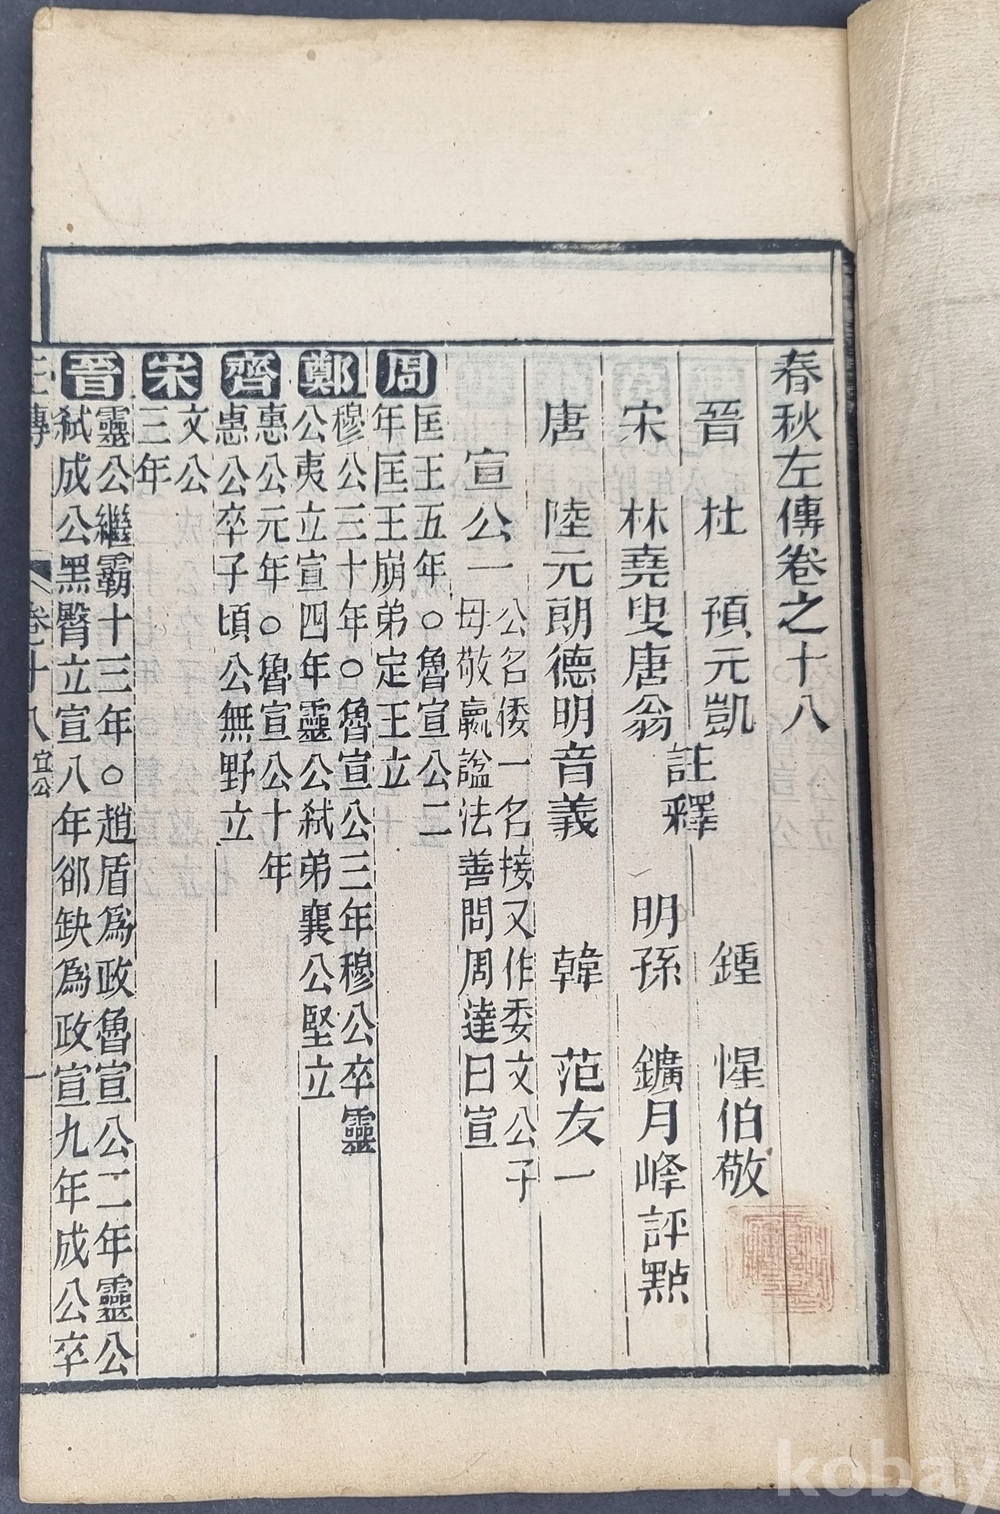 春秋左傳卷之十八
晉 杜 預元凱 鍾 惺伯敬
註釋
宋 林堯叟唐翁 明孫 鑛月峰評點
唐 陸元朗德明音義 韓 范友一
宣公一 公名倭一名接又作委文公子
母敬嬴諡法善問周達曰宣
周 匡王五年○魯宣公二
年匡王崩弟定王立
鄭 穆公三十年○魯宣公三年穆公卒靈
公夷立宣四年靈公弑弟襄公堅立
齊 惠公元年○魯宣公十年
惠公卒子頃公無野立
宋 文公
三年
晉 靈公繼霸十三年○趙盾爲政魯宣公二年靈公
弑成公黑臀立宣八年郤缺爲政宣九年成公卒
左傳 卷十八 宣公 一
kobay